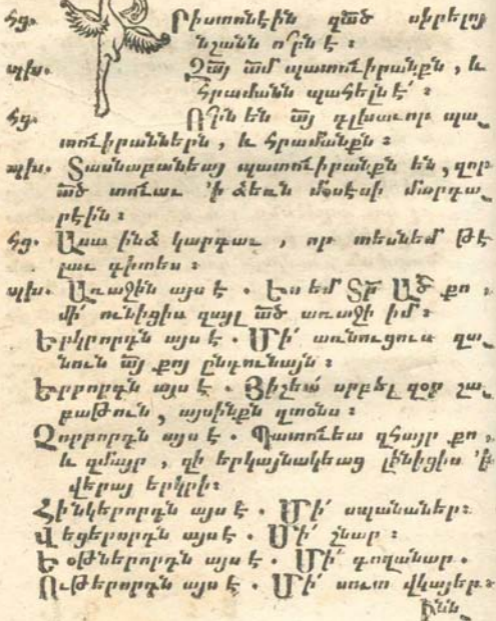 Հց. Քրիստոնէին զա՟ծ սիրելոյ
նշանն ո՞րն է ։
պխ. Զա՟յ ա՟մ պատուիրանքն , և
հրամանն պահելն է՛ ։
Հց. Ո՞րն են ա՟յ գլխաւոր պա֊
տուիրաններն , և հրամանքն ։
պխ. Տասնաբանեայ պատուիրանքն են , զոր
ա՟ծ տուաւ ՚ի ձեռն մօսէսի մարգա֊
րէին ։
Հց. Ասա ինձ կարգաւ , որ տեսնեմ թէ
լաւ գիտես ։
պխ. Առաջին այս է . Ես եմ Տ՟ր Ա՟ծ քո .
մի՛ ունիցիս զայլ ա՟ծ առաջի իմ ։
Երկրորդն այս է . Մի՛ առնուցուս զա֊
նուն ա՟յ քոյ ընդունայն ։
Երրորդն այս է . Յիշեա՛ սրբել զօր շա֊
բաթուն , այսինքն զտօնս ։
Չորրորդն այս է . Պատուեա զհայր քո ,
և զմայր , զի երկայնակեաց լինիցիս ՚ի
վերայ երկրի ։
Հինկերորդն այս է . Մի՛ սպանաներ ։
Վեցերորդն այս է . Մի՛ շնար ։
Եօթներորդն այս է . Մի՛ գողանար .
Ութերորդն այս է . Մի՛ սուտ վկայեր ։
Ինն֊